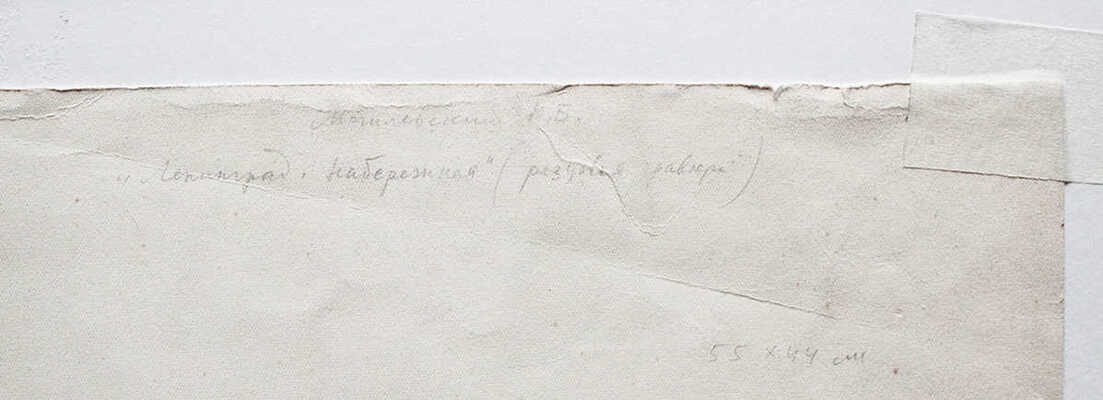 Могилевский А.Б.
"Ленинград. Набережная" (резцовая гравюра)
55 × 44 см